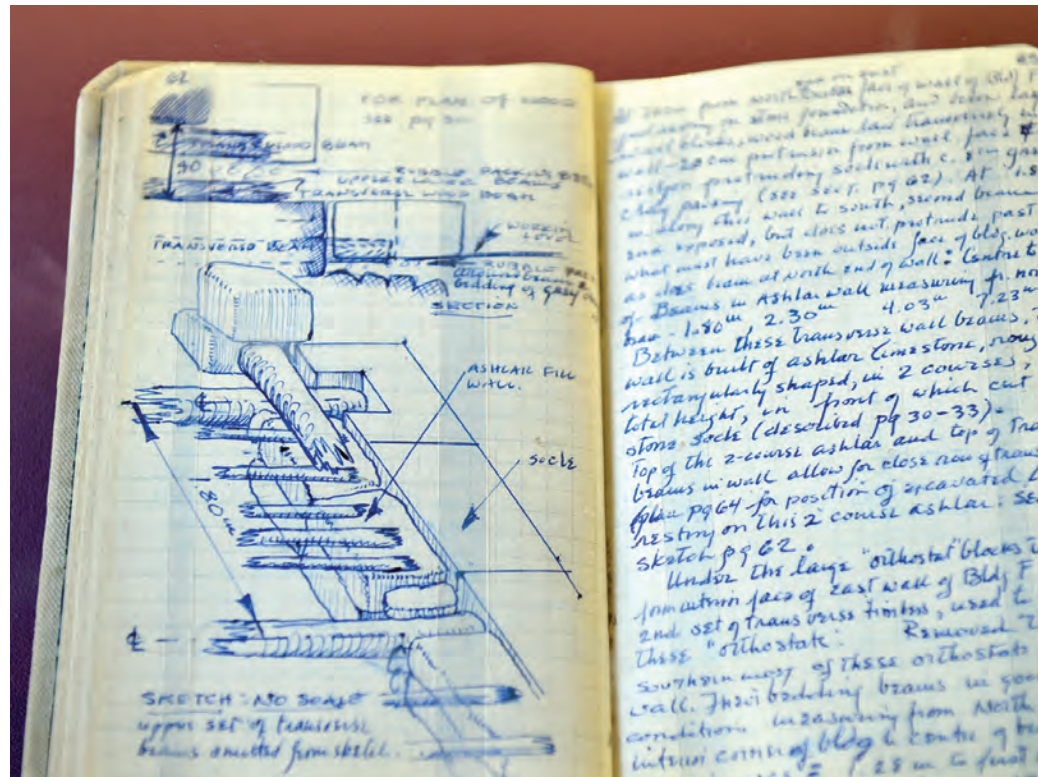 62
FOR PLANS OF WOOD
see pg
TRANSVERSE WOOD BEAM
90
RUBBLE PACKING BET.
UPPER & LOWER BEAMS
TRANSVERSE WOOD BEAM
TRANSVERSE BEAM
WORKING
LEVEL
RUBBLE PACK
around beams &
bedding of
SECTION
ASHLAR FILL
WALL.
SOCLE
1.80 m
℄
SKETCH: NO SCALE
upper set of transverse
beams omitted from sketch.
from north face of wall of Bldg F
on stone foundation, and
blocks, wood beam laid transversely
wall - 20 cm protrusion from wall face
protruding socle with c. 8 cm
clay packing (see sect. pg 62). At 1.8
m along this wall to south, second beam
end exposed, but does not protrude past
what must have been outside face of bldg. wall
as does beam at north end of wall: Centre to
of Beams in Ashlar wall measuring fr. nor
beam - 1.80m, 2.30m 4.03m 7.23m
Between these transverse wall beams,
wall is built of ashlar limestone, roug
rectangularly shaped, in 2 courses,
total height, in front of which cut
stone socle (described pg 30-33).
Top of the 2-course ashlar and top of Tra
beams in wall allow for close row of trans
(plan pg 64 for position of excavated
resting on this 2 course ashlar: See
sketch pg 62.
Under the large "orthostat" blocks
form interior face of east wall of Bldg F
2nd set of transverse timbers, used to
these "orthostats". Removed
southern most of these orthostats
wall. Their bedding beams in good
condition measuring from North
interior corner of bldg to centre of be
1.28 m to first